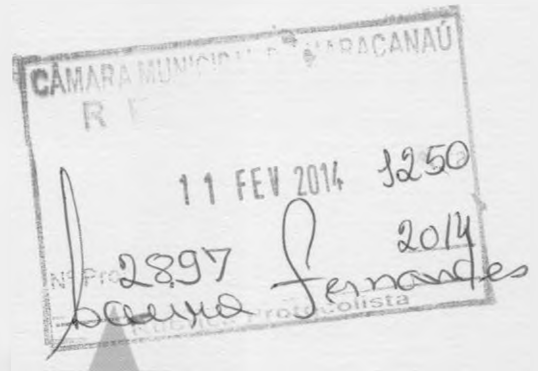 CÂMARA MUNICIPAL DE MARACANAÚ
11 FEV 2014 1250
Nº Pro 2897 2014
Laura Fernandes
Protocolista